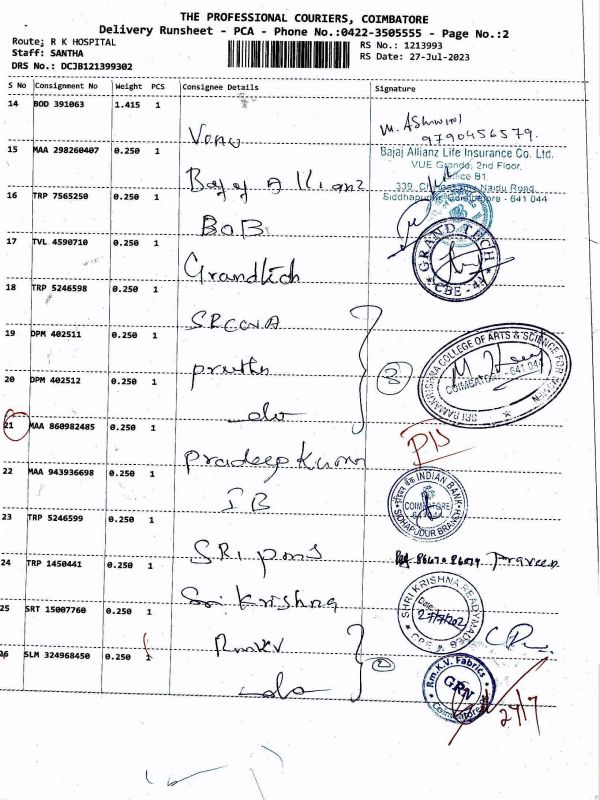 THE PROFESSIONAL COURIERS, COIMBATORE
Delivery Runsheet - PCA - Phone No.:0422-3505555 - Page No.:2
Route; R K HOSPITAL
Staff: SANTHA
DRS No.: DCJB121399302
RS No.: 1213993
RS Date: 27-Jul-2023
S No Consignment No Weight PCS Consignee Details Signature
14 BOD 391063 1.415 1
Venu
M. ASHWINI
9790456579.
15 MAA 298260407 0.250 1
Bajaj Allianz
Bajaj Allianz Life Insurance Co. Ltd.
VUE Grande, 2nd Floor,
Office B1,
339, Naidu Road,
Siddhapudur, Coimbatore - 641 044
16 TRP 7565250 0.250 1
BOB
17 TVL 4590710 0.250 1
Grandtech
GRAND TECH
CBE - 44
18 TRP 5246598 0.250 1
SRCCNA
19 DPM 402511 0.250 1
preethi
20 DPM 402512 0.250 1
do
3
SRI RAMAKRISHNA COLLEGE OF ARTS & SCIENCE FOR WOMEN
COIMBATORE - 641 044
21 MAA 860982485 0.250 1
Pradeep Kumar
22 MAA 943936698 0.250 1
IB
INDIAN BANK
COIMBATORE
641044
SIDHAPUDUR BRANCH
23 TRP 5246599 0.250 1
SRI pons
Praveen
24 TRP 1450441 0.250 1
Sri Krishna
SHRI KRISHNA READYMADES
Date:
27/7/202
CBE
25 SRT 15007760 0.250 1
RmKV
26 SLM 324968450 0.250 1
do
2
Rm.K.V. Fabrics
GRN
Coimbatore
27/7